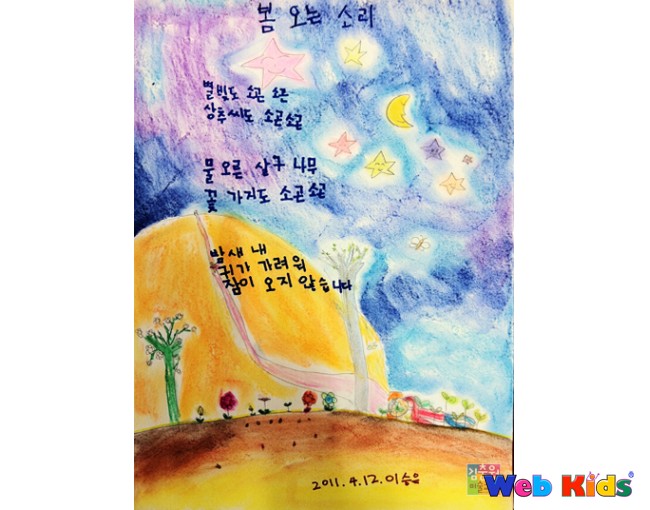 봄 오는 소리
별빛도 소곤 소곤
상추씨도 소곤소곤
물 오른 살구 나무
꽃 가지도 소곤소곤
밤새 내
귀가 가려워
잠이 오지 않습니다
2011.4.12.이승유
김충원
미술
Web Kids